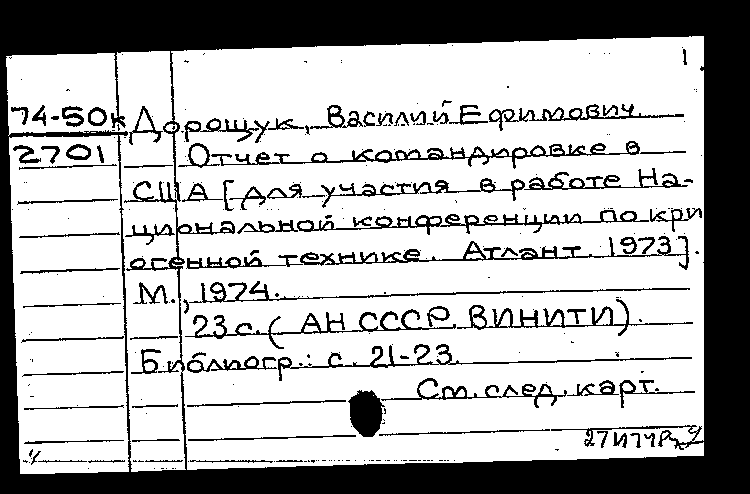 1
74-50к Дорощук, Василий Ефимович.
2701 Отчет о командировке в
США [для участия в работе На-
циональной конференции по кри
огенной технике. Атлант. 1973].
М., 1974.
23 с. (АН СССР. ВИНИТИ).
Библиогр.: с. 21-23.
См. след. карт.